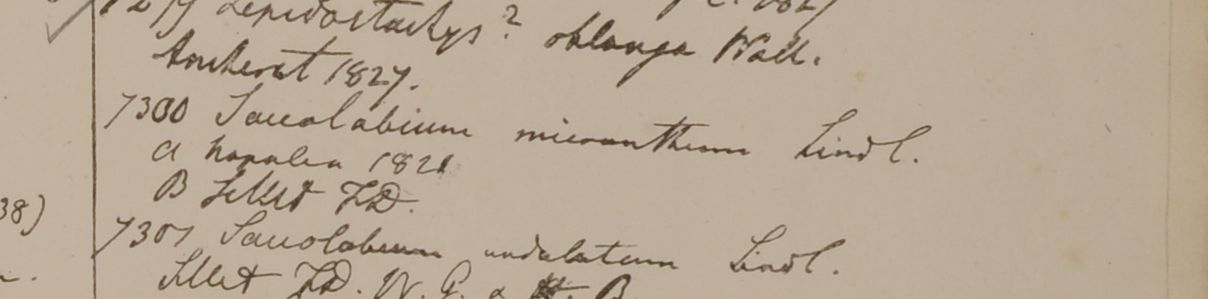 Lepidostachys? oblonga Wall.
Amherst 1827.
7300 Saccolabium micranthum Lindl.
a Napalia 1821
B Sillet FD.
7301 Saccolabium undulatum Lindl.
Sillet FD. W. G. &
38)